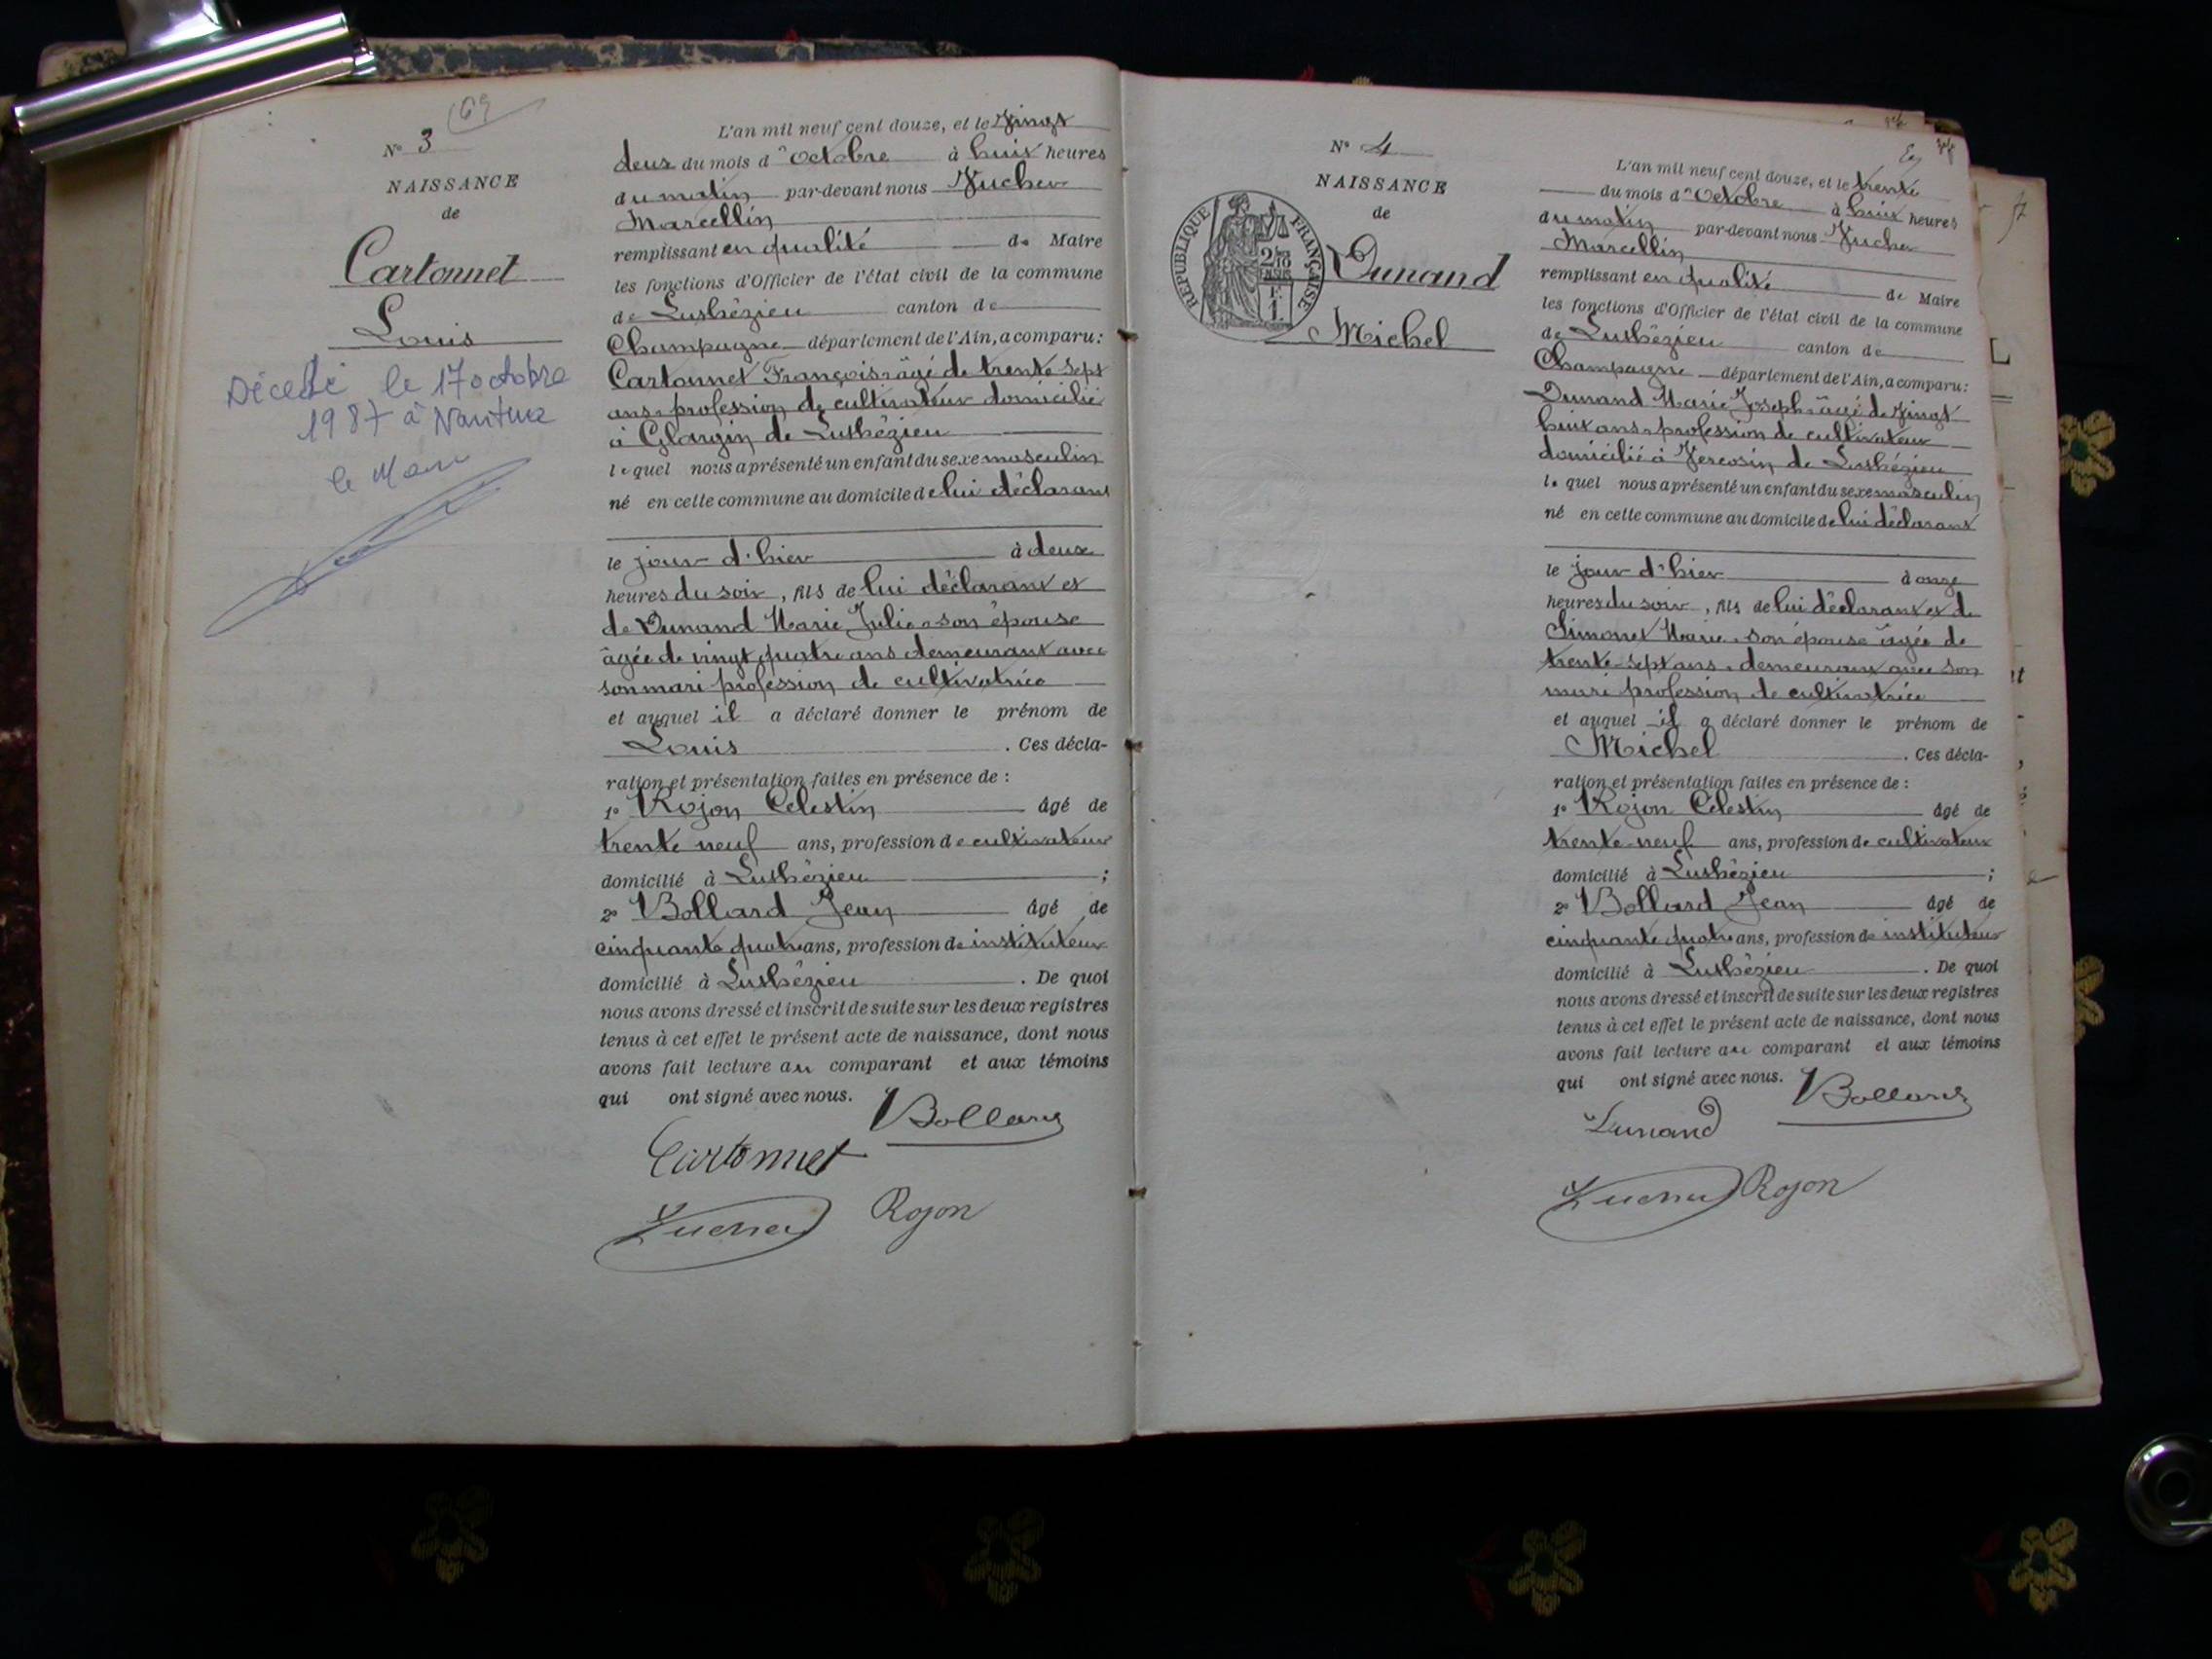 69
N° 3
NAISSANCE
de
Cartonnet
Louis
Décédé le 17 octobre
1987 à Nantua
le Maire
L'an mil neuf cent douze, et le Vingt
deux du mois d'octobre à huit heures
du matin par-devant nous Jucher
Marcellin
remplissant en qualité de Maire
les fonctions d'Officier de l'état civil de la commune
de Luthézieu canton de
Champagne département de l'Ain, a comparu:
Cartonnet François âgé de trente sept
ans profession de cultivateur domicilié
à Glargin de Luthézieu
lequel nous a présenté un enfant du sexe masculin
né en cette commune au domicile de lui déclarant
le jour d'hier à deux
heures du soir, fils de lui déclarant et
de Dunand Marie Julie son épouse
âgée de vingt quatre ans demeurant avec
son mari profession de cultivatrice
et auquel il a déclaré donner le prénom de
Louis. Ces décla-
ration et présentation faites en présence de :
1° Rojon Célestin âgé de
trente neuf ans, profession de cultivateur
domicilié à Luthézieu ;
2° Bollard Jean âgé de
cinquante quatre ans, profession de instituteur
domicilié à Luthézieu. De quoi
nous avons dressé et inscrit de suite sur les deux registres
tenus à cet effet le présent acte de naissance, dont nous
avons fait lecture au comparant et aux témoins
qui ont signé avec nous.
Bollard
Cartonnet
Jucher Rojon
N° 4
NAISSANCE
de
RÉPUBLIQUE FRANÇAISE
Dunand
Michel
L'an mil neuf cent douze, et le trente
du mois d'Octobre à huit heures
du matin par-devant nous Jucher
Marcellin
remplissant en qualité de Maire
les fonctions d'Officier de l'état civil de la commune
de Luthézieu canton de
Champagne département de l'Ain, a comparu:
Dunand Marie Joseph âgé de Vingt
huit ans profession de cultivateur
domicilié à Vercosin de Luthézieu
lequel nous a présenté un enfant du sexe masculin
né en cette commune au domicile de lui déclarant
le jour d'hier à onze
heures du soir, fils de lui déclarant et de
Simonet Marie son épouse âgée de
trente-sept ans demeurant avec son
mari profession de cultivatrice
et auquel il a déclaré donner le prénom de
Michel. Ces décla-
ration et présentation faites en présence de :
1° Rojon Célestin âgé de
trente-neuf ans, profession de cultivateur
domicilié à Luthézieu ;
2° Bollard Jean âgé de
cinquante quatre ans, profession de instituteur
domicilié à Luthézieu. De quoi
nous avons dressé et inscrit de suite sur les deux registres
tenus à cet effet le présent acte de naissance, dont nous
avons fait lecture au comparant et aux témoins
qui ont signé avec nous.
Bollard
Dunand
Jucher Rojon